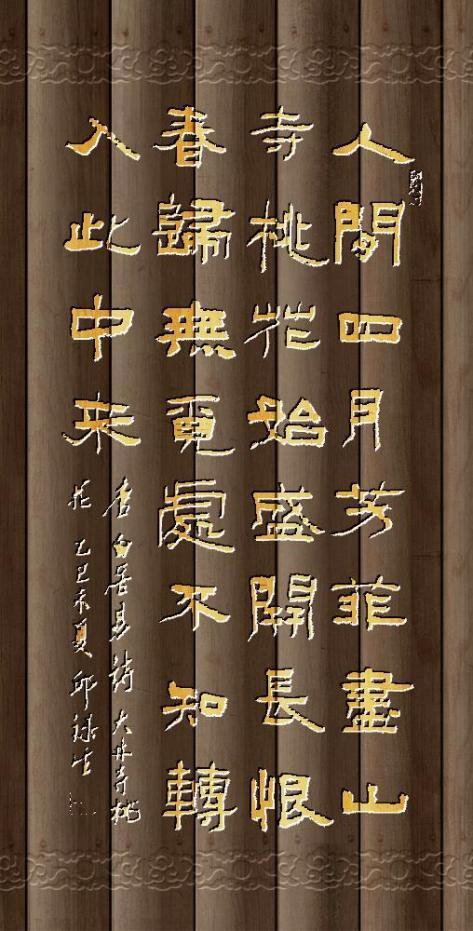 人間四月芳菲盡山
寺桃花始盛開長恨
春歸無覓處不知轉
入此中来
唐白居易詩大林寺桃
花 乙巳末夏 邱